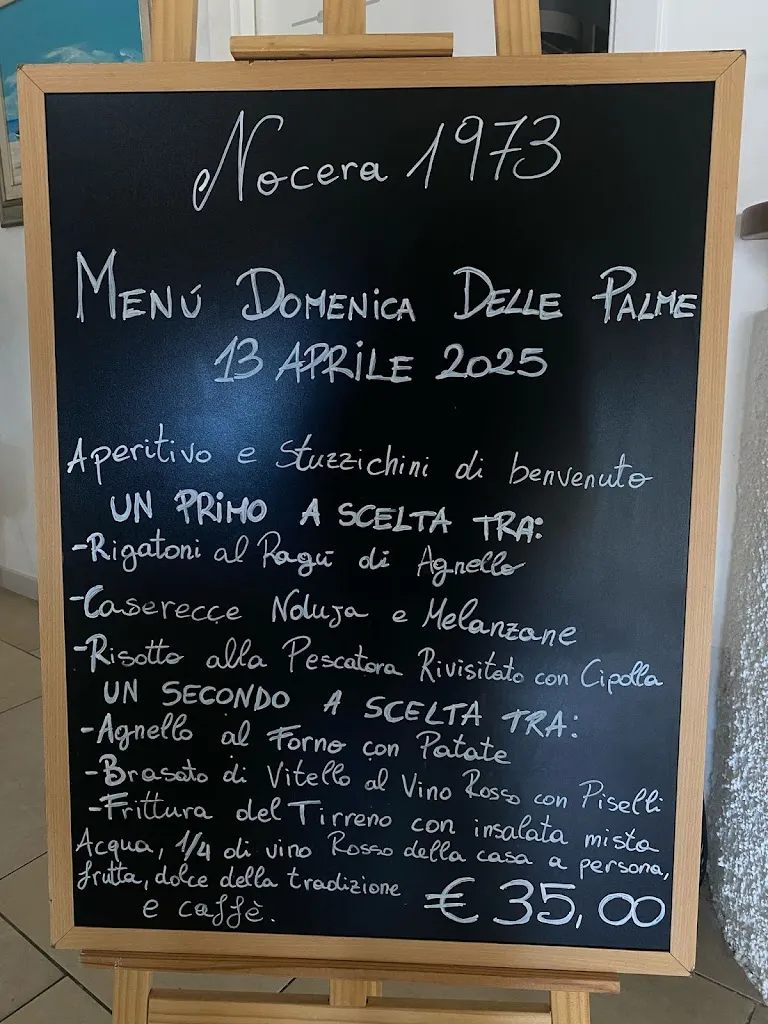 Nocera 1973
MENÚ DOMENICA DELLE PALME
13 APRILE 2025
Aperitivo e Stuzzichini di benvenuto
UN PRIMO A SCELTA TRA:
-Rigatoni al Ragù di Agnello
-Caserecce Noduja e Melanzane
-Risotto alla Pescatora Rivisitato con Cipolla
UN SECONDO A SCELTA TRA:
-Agnello al Forno con Patate
-Brasato di Vitello al Vino Rosso con Piselli
-Frittura del Tirreno con insalata mista
Acqua, 1/4 di vino Rosso della casa a persona,
frutta, dolce della tradizione
e caffè. € 35,00